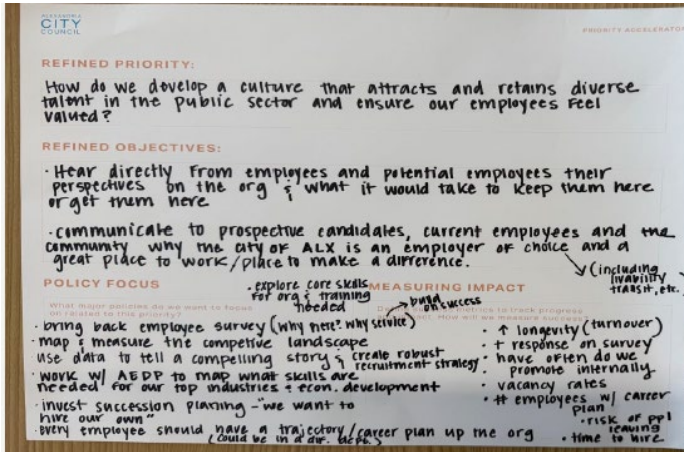 ALEXANDRIA
CITY
COUNCIL
PRIORITY ACCELERATOR
REFINED PRIORITY:
How do we develop a culture that attracts and retains diverse
talent in the public sector and ensure our employees feel
valued?
REFINED OBJECTIVES:
· Hear directly from employees and potential employees their
perspectives on the org & what it would take to keep them here
or get them here
· communicate to prospective candidates, current employees and the
community why the city of ALX is an employer of choice and a
great place to work/place to make a difference.
(including
livability
transit, etc.)
POLICY FOCUS
What major policies do we want to focus
on related to this priority?
· explore core skills
for org & training
needed
· bring back employee survey (why here? why service)
build
on success
· map & measure the competive landscape
use data to tell a compelling story & create robust
recruitment strategy
· work w/ AEDP to map what skills are
needed for our top industries & econ. development
· invest succession planing - "we want to
hire our own"
· every employee should have a trajectory/career plan up the org
(could be in a dif. dept.)
MEASURING IMPACT
metrics to track progress
How will we measure success?
· ↑ longevity (turnover)
· + response on survey
· have often do we
promote internally
· vacancy rates
· # employees w/ career
plan
· risk of ppl
leaving
· time to hire